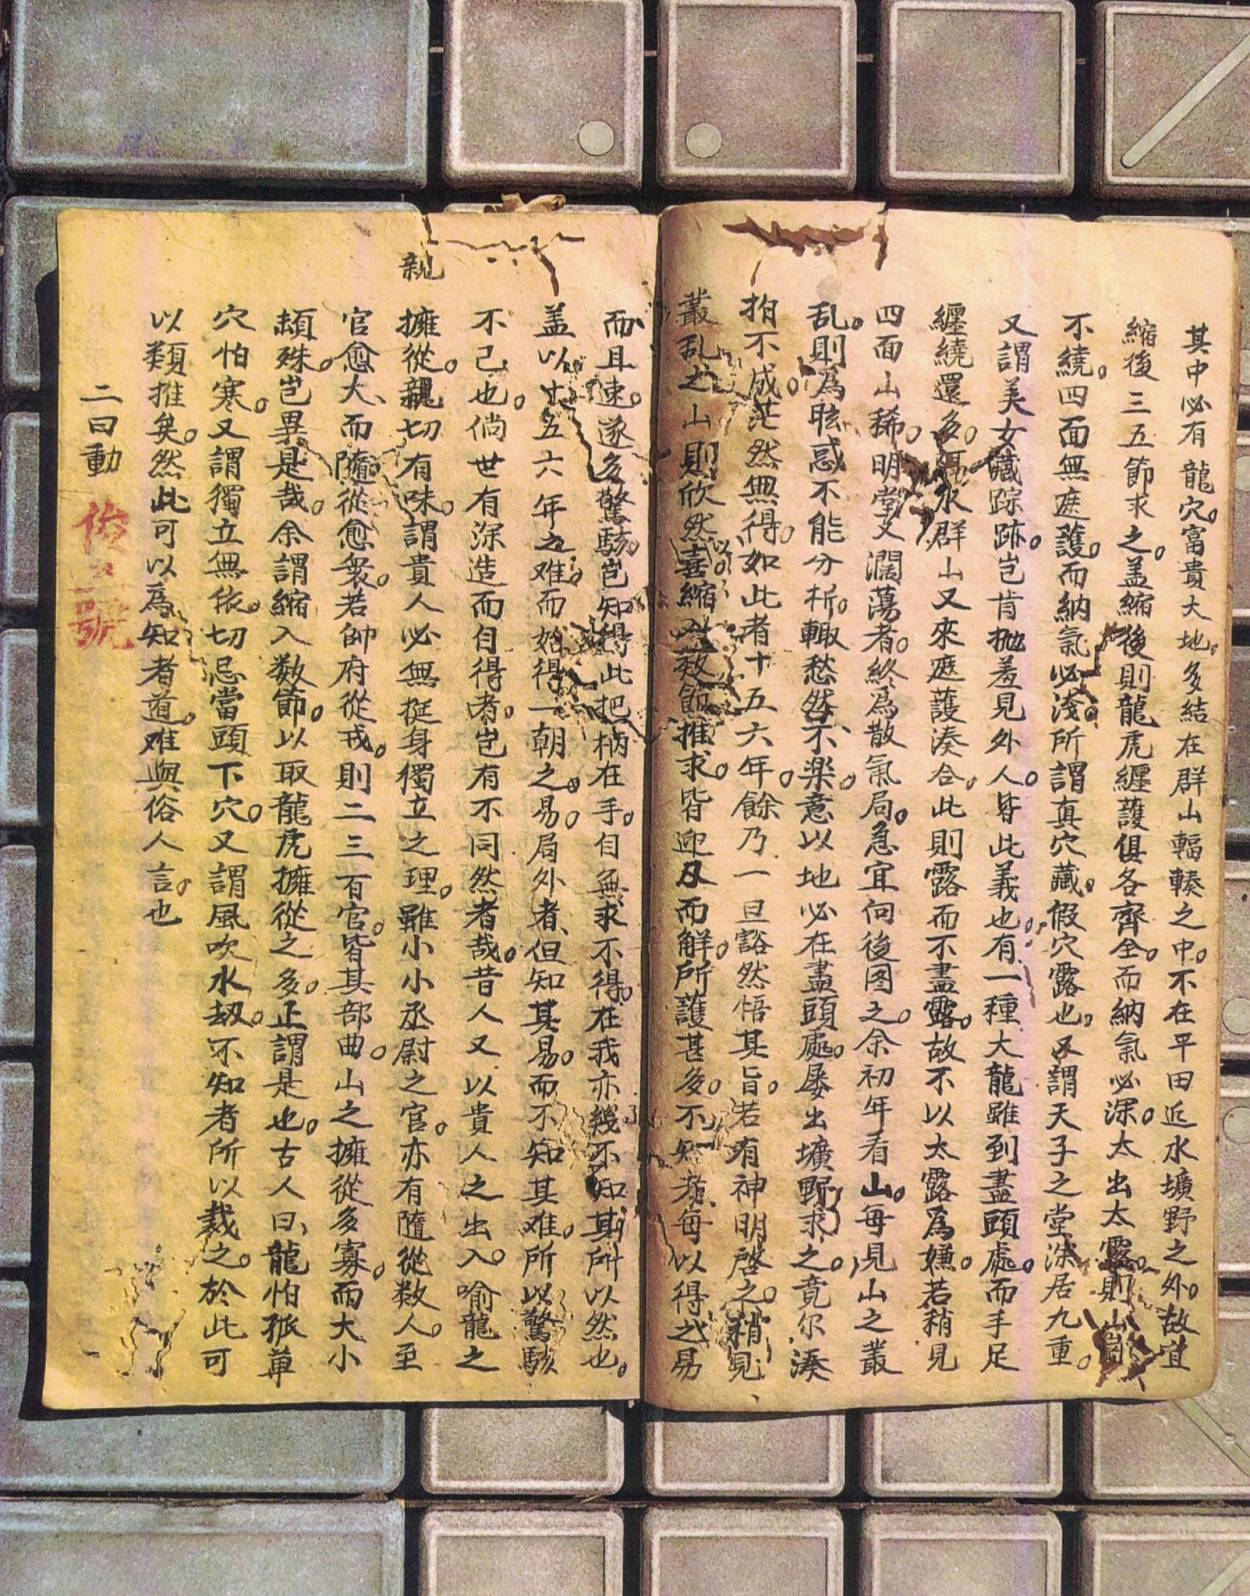 其中必有龍穴。富貴大地。多結在群山輻輳之中。不在平田近水壙野之外。故宜
縮後三五節求之。盖縮後則龍虎纏護俱各齊全。而納氣必深。太出太露。則山
不繞。四面無遮護。而納氣必淺。所謂真穴藏。假穴露也。又謂天子之堂深居九重。
又謂美女藏踪跡。岂肯拋羞見外人。皆此義也。有一種大龍雖到盡頭處。而手足
纏繞還多。水群山又來遮護湊合。此則露而不盡露。故不以太露為嫌。若稍見
四面山稀。明堂又濶蕩者。終為散氣局。急宜向後图之。余初年看山。每見山之叢
乱。則為眩惑不能分析。輙愁然不楽。意以地必在盡頭處。屡出壙野求之。竟尔湊
拍不成。茫然無得。如此者十五六年。餘乃一旦豁然悟其旨。若有神明啓之。稍見
叢乱之山則欣然喜。縮入数節推求。皆迎刃而解。所護甚多。不知者每以得之易
而且速。遂多驚駭。岂知得此把柄在手。自無求不得。在我亦幾不知其所以然也。
盖以十五六年之难。而始得一朝之易。局外者、但知其易。而不知其难。所以驚駭
不已也。倘世有深造而自得者。岂有不同然者哉。昔人又以貴人之出入。喻龍之
親
擁從。親切有味。謂貴人必無挺身獨立之理。雖小小丞尉之官。亦有隨從数人。至
官愈大、而隨從愈衆。若帥府從戎。則二三百官。皆其部曲。山之擁從多寡。而大小
頓殊。岂異是哉。余謂縮入数節。以取龍虎擁從之多。正謂是也。古人曰、龍怕孤单
穴怕寒。又謂獨立無依。切忌當頭下穴。又謂風吹水刼。不知者所以裁之。於此可
以類推矣。然此可以為知者道。难與俗人言。也
二曰動
俊 號